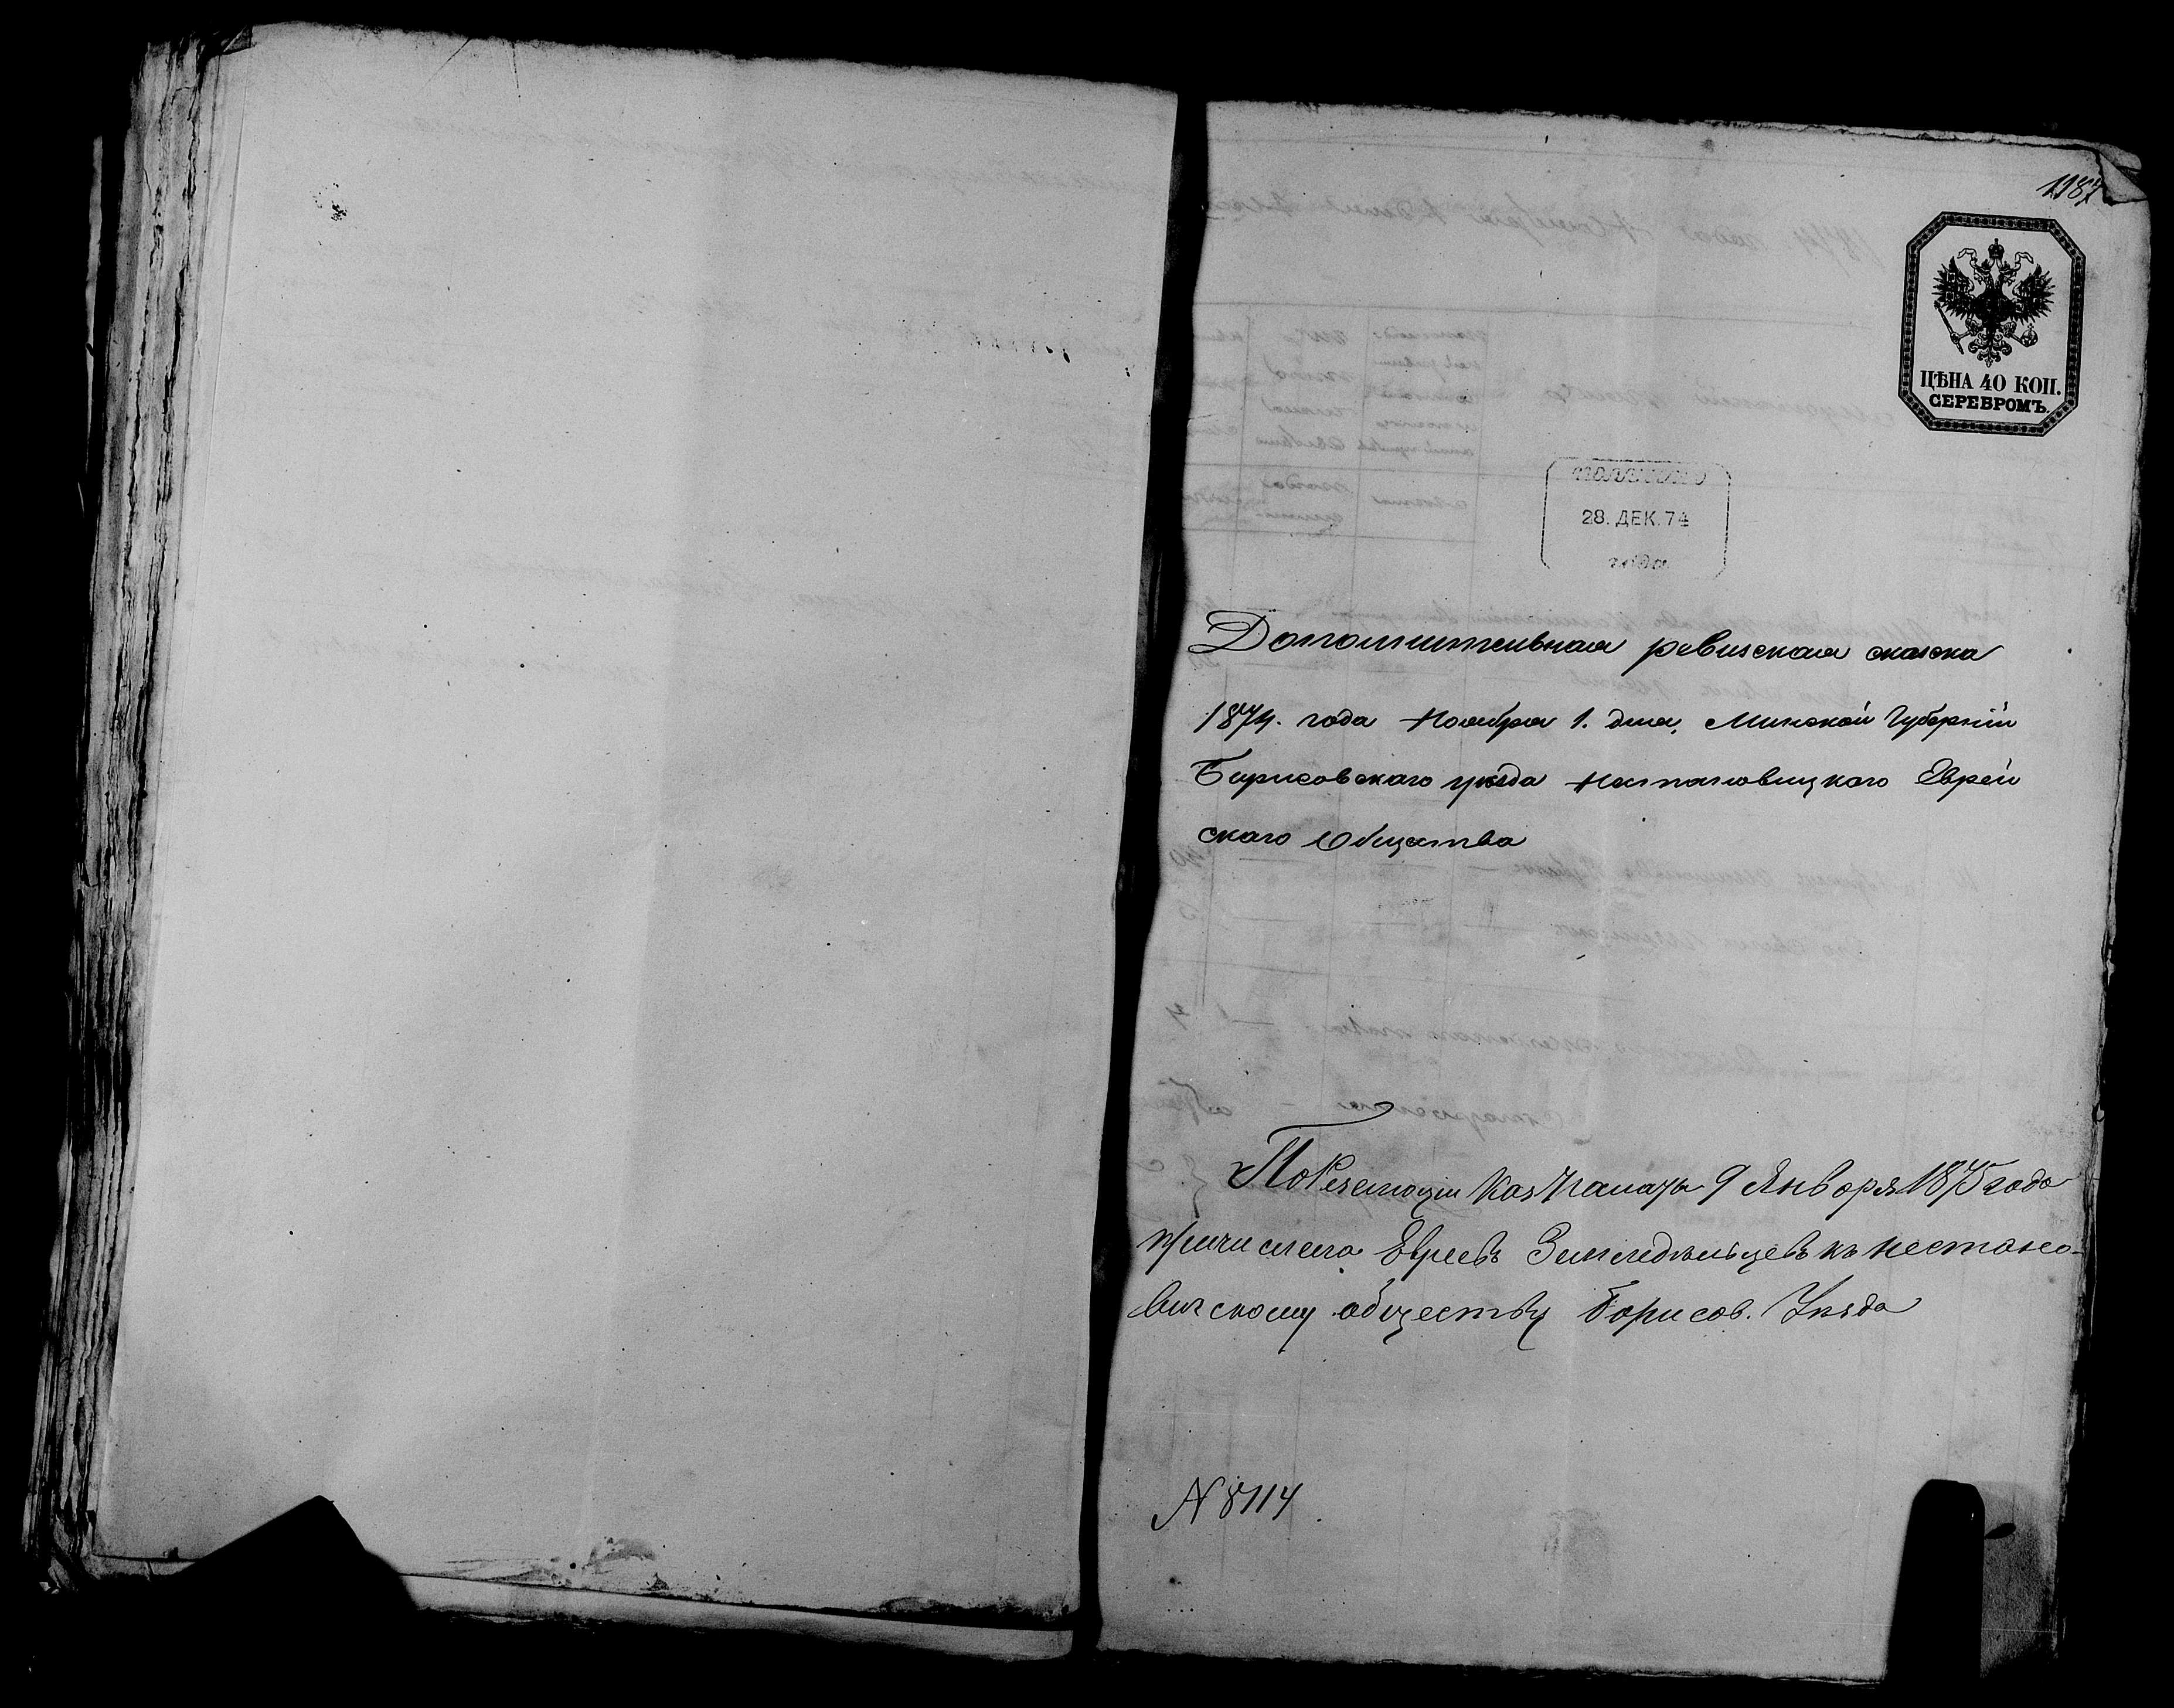 1187
ЦѢНА 40 КОП.
СЕРЕБРОМЪ.
ПОЛУЧЕНО
28. ДЕК. 74
года
Дополнительная ревизская сказка
1874. года Ноября 1. дня, Минской Губерніи
Борисовскаго уѣзда Нестановицкаго Еврей
скаго Общества
По Резолюціи Каз Палаты 9 Января 1875 года
причислено Евреевъ Земледѣльцевъ къ Нестано-
вичскому обществу Борисов. Уѣзда
N 8114